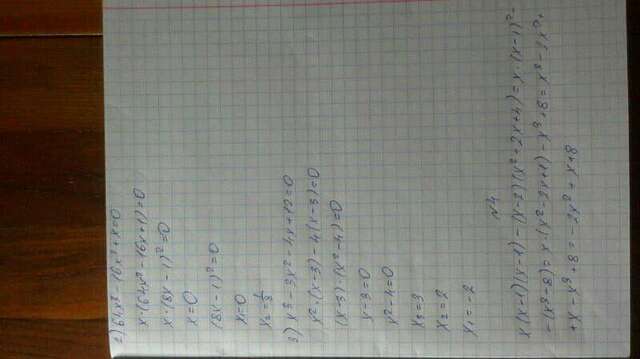 2) 64x³-16x²+x=0
x·(64x²-16x+1)=0
x·(8x-1)²=0
x=0
(8x-1)²=0
x₁=0
x₂=1/8
3) x³-3x²-4x+12=0
x²·(x-3)-4(x-3)=0
(x-3)·(x²-4)=0
x-3=0
x²-4=0
x₃=3
x₂=2
x₁=-2
№4
x(x-1)(x-1)-(x-2)(x²+2x+4)=x·(x-1)²-
-(x³-8)=x(x²-2x+1)-x³+8=x³-2x²+
+x-x³+8=-2x²+x+8